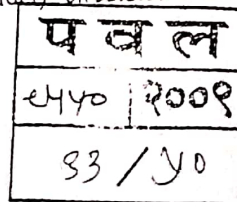 प व ल
९५५० २००९
३३ / ५०